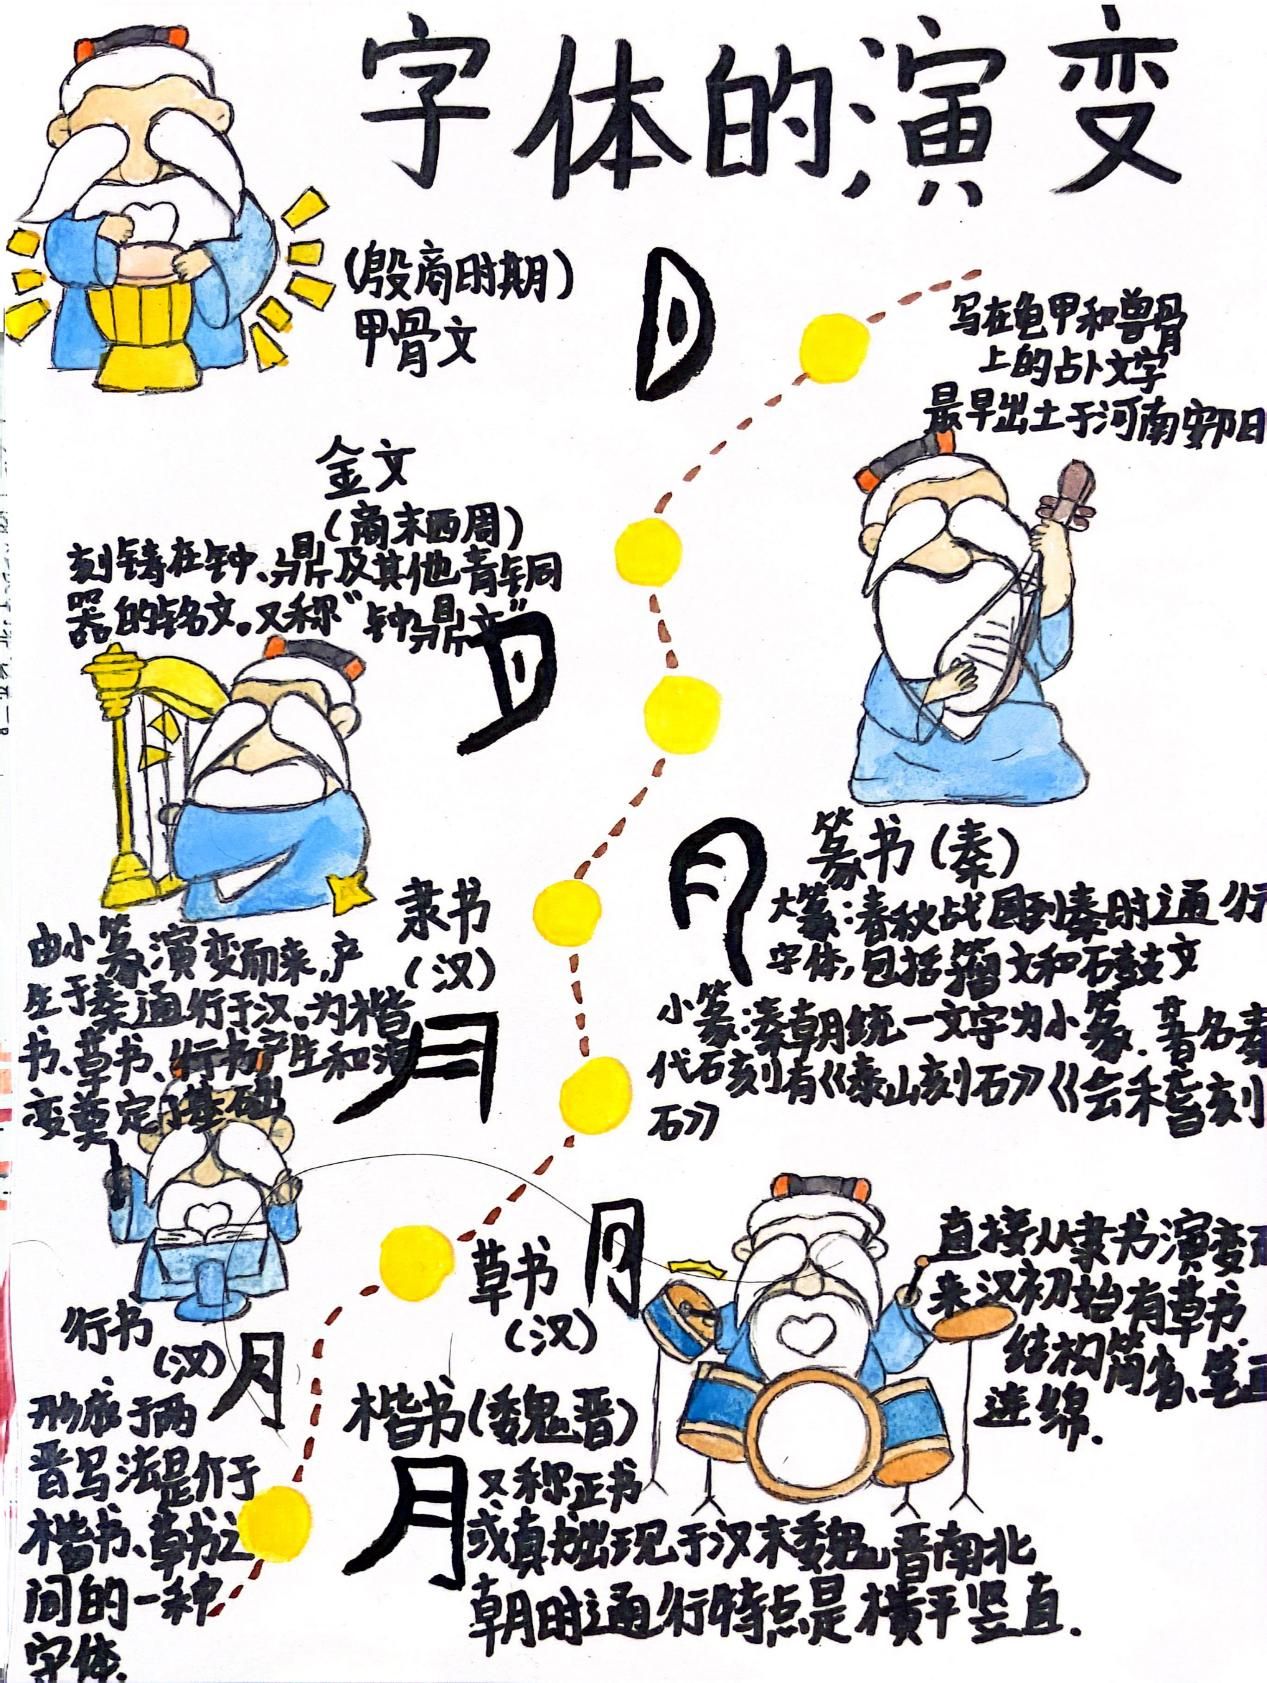 字体的演变
(殷商时期)
甲骨文
写在龟甲和兽骨
上的占卜文字
最早出土于河南安阳
金文
(商末西周)
刻铸在钟、鼎及其他青铜
器的铭文。又称“钟鼎文”
篆书(秦)
大篆:春秋战国到秦时通行
字体,包括籀文和石鼓文
小篆:秦朝统一文字为小篆.著名秦
代石刻有《泰山刻石》《会稽刻
石》
月
隶书
(汉)
由小篆演变而来,产
生于秦通行于汉。为楷
书、草书、行书产生和演
变奠定了基础
月
草书
(汉)
月
直接从隶书演变而
来汉初始有草书.
结构简省、笔画
连绵.
行书
(汉)
月
形成于两
晋写法是介于
楷书、草书之
间的一种
字体.
楷书(魏晋)
月
又称正书
或真书出现于汉末魏晋南北
朝时通行特点是横平竖直.